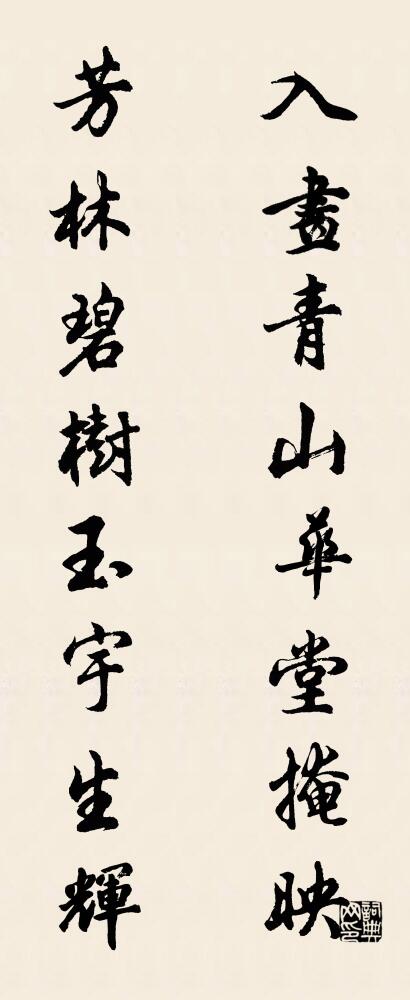 入畫青山華堂掩映
芳林碧樹玉宇生輝
詞典网印